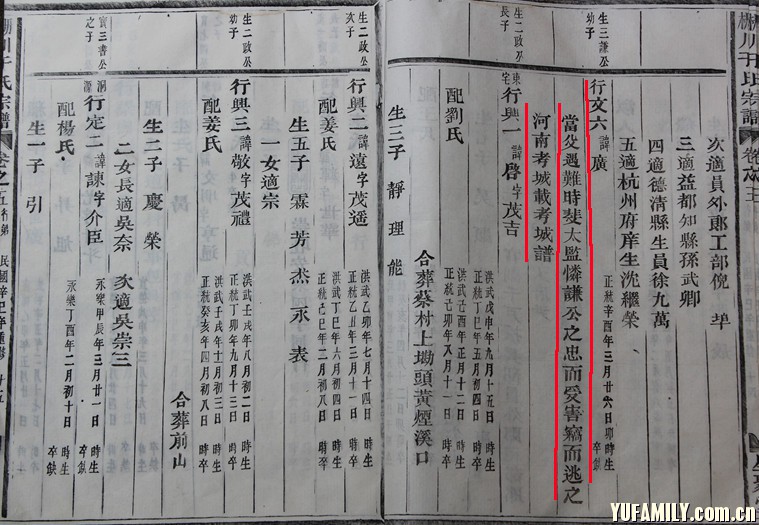 次適員外郎工部倪埠
三適益都知縣孫武卿
四適德清縣生員徐九萬
五適杭州府庠生沈繼榮
生三謙公幼子
行文六諱廣
正統辛酉年三月廿六日卯時生
卒缺
當父遇難時斐太監憐謙公之忠而受害竊而逃之
河南考城載考城譜
生二政公長子
東宅
行興一諱啓字茂吉
洪武戊申年九月十五日時生
正統己巳年五月初四日時卒
配劉氏
洪武己酉年正月初二日時生
正統己卯年八月十一日時卒
合葬蔡村上塢頭黃煙溪口
生三子靜理能
生二政公次子
行興二諱遠字茂遥
洪武乙卯年七月十四日時生
正統乙丑年三月十一日時卒
配姜氏
洪武丁巳年六月初四日時生
正統己巳年二月初二日時卒
生五子霖芳杰永表
一女適宗
生二政公幼子
行興三諱敬字茂禮
洪武壬戌年八月初二日時生
正統丁卯年九月十三日時卒
配姜氏
洪武壬戌年十一月初三日時生
正統癸亥年四月初八日時卒
合葬前山
生二子慶榮
二女長適吳奈次適吳崇三
寶三書公之子
洞源
行定二諱諫字介臣
永樂甲辰年三月廿一日時生
卒缺
配楊氏
永樂丁酉年二月初十日時生
卒缺
生一子引
川于氏宗譜
卷之五
YUFAMILY.com.cn